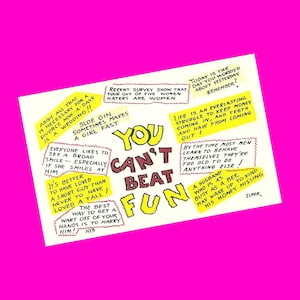 RECENT SURVEY SHOW THAT
FOUR OUT OF FIVE WOMEN
HATERS ARE WOMEN
TODAY IS THE
DAY YOU WORRIED
ABOUT YESTERDAY
REMEMBER!
ABOUT THE
IS NECESSARY FOR A
DIVORCE NOW A DAYS
WEDDING!!
SLOE GIN
SOMETIMES MAKES
A GIRL FAST
LIFE IS AN EVERLASTING
STRUGGLE TO KEEP MONEY
COMING IN AND TEETH
AND HAIR FROM COMING
OUT!
YOU
CAN'T
BEAT
FUN
EVERYONE LIKES TO
SEE A BROAD
SMILE - ESPECIALLY
IF SHE SMILES AT
HIM
BY THE TIME MOST MEN
LEARN TO BEHAVE
THEMSELVES THEY'RE
TOO OLD TO DO
ANYTHING ELSE.
IT'S BETTER
TO HAVE LOVED
A SHORT GIRL THAN
NEVER TO HAVE
LOVED A TALL
THE BEST
WAY TO GET A
WART OFF OF YOUR
HANDS IS TO MARRY
HIM!
103
A HUSBAND
BUSY AS A BEE
MAY WAKE UP TO FIND
HIS HONEY MISSING
ELMER